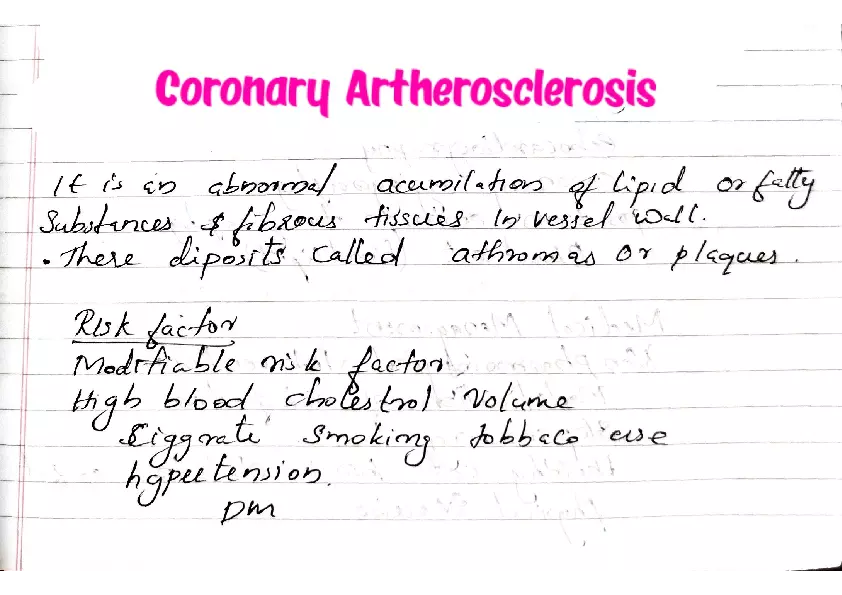 Coronary Artherosclerosis
It is an abnormal acumilation of lipid or fatty
Substances & fibrous tissues in vessel wall.
• There diposits called athromas or plaques.
Risk factor
Modifiable risk factor
High blood cholestrol volume
Siggrate smoking tobbaco use
hypertension.
DM